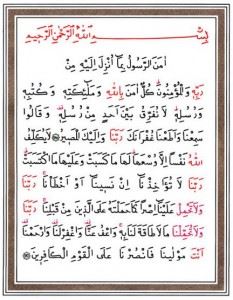 بِسْمِ اللهِ الرَّحْمٰنِ الرَّحِيمِ
اٰمَنَ الرَّسُولُ بِمَا اُنْزِلَ اِلَيْهِ مِنْ
رَبِّهِ وَالْمُؤْمِنُونَ كُلٌّ اٰمَنَ بِاللهِ وَمَلٰئِكَتِهِ وَكُتُبِهِ
وَرُسُلِهِ لَا نُفَرِّقُ بَيْنَ اَحَدٍ مِنْ رُسُلِهِ وَقَالُوا
سَمِعْنَا وَاَطَعْنَا غُفْرَانَكَ رَبَّنَا وَاِلَيْكَ الْمَصِيرُ لَا يُكَلِّفُ
اللهُ نَفْسًا اِلَّا وُسْعَهَا لَهَا مَا كَسَبَتْ وَعَلَيْهَا مَا اكْتَسَبَتْ
رَبَّنَا لَا تُؤَاخِذْنَا اِنْ نَسِينَا اَوْ اَخْطَاْنَا رَبَّنَا
وَلَا تَحْمِلْ عَلَيْنَا اِصْرًا كَمَا حَمَلْتَهُ عَلَى الَّذِينَ مِنْ قَبْلِنَا رَبَّنَا
وَلَا تُحَمِّلْنَا مَا لَا طَاقَةَ لَنَا بِهِ وَاعْفُ عَنَّا وَاغْفِرْ لَنَا وَارْحَمْنَا
اَنْتَ مَوْلٰينَا فَانْصُرْنَا عَلَى الْقَوْمِ الْكَافِرِينَ